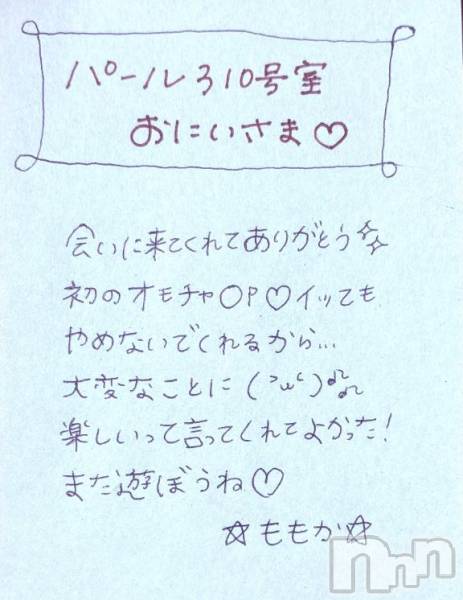 パール310号室
おにいさま♡
会いに来てくれてありがとう☆☆
初のオモチャOP♡イッても
やめないでくれるから…
大変なことに(´ω`)♪♪
楽しいって言ってくれてよかった!
また遊ぼうね♡
☆ももか☆
nnn